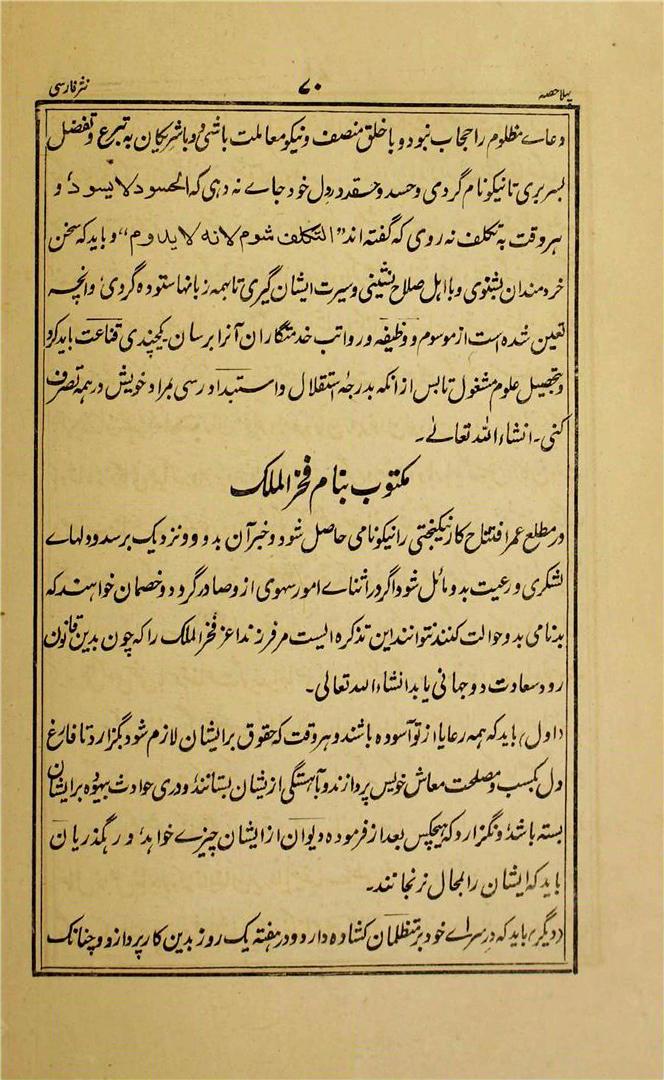 پہلا حصہ ۷۰ نثر فارسی
دعاے مظلوم را حجاب نبود و با خلق منصف و نیکو معاملت باشی و با شریکان به تبرع و تفضل
بسر بری تا نیکو نام گردی و حسد و حقد در دل خود جاے نه دهی که الحسود لا یسود و
هر وقت به تکلف نه روی که گفته اند "التکلف شوم لانه لا یدوم" و باید که سخن
خردمندان بشنوی و با اهل صلاح بنشینی و سیرت ایشان گیری تا بهمه زبانها ستوده گردی و انچه
تعین شده است از موسوم و وظیفه و رواتب خدمتگاران آنرا برسان۔ یکچندی قناعت باید کرد
و بتحصیل علوم مشغول تا بس از انکه بدرجۀ استقلال و استبداد رسی بمراد خویش در همه تصرف
کنی۔ انشاء الله تعالے۔
مکتوب بنام فخر الملک
در مطلع عمر افتتاح کار نیکبختی را نیکونامی حاصل شود و خبر آن بدور و نزدیک برسد و دلهاے
لشکری و رعیت بدو مائل شود اگر در اثناے امور سهوی ازو صادر گردد و خصمان خواهند که
بدنامی بدو حوالت کنند نتوانند این تذکره ایست مر فرزند اعز فخر الملک را که چون بدین قانون
رود سعادت دو جهانی یابد انشاء الله تعالی۔
(اول) باید که همه رعایا از تو آسوده باشند و هر وقت که حقوق بر ایشان لازم شود بگزارد تا فارغ
دل بکسب و مصلحت معاش خویس پردازند و بآهستگی ازیشان بستانند و دری حوادث بیهوده بر ایشان
بسته باشد و نگزارد که هیچکس بعد از فرموده دیوان از ایشان چیزے خواهد و رهگذریان
باید که ایشان را لمحال نرنجانند۔
(دیگر) باید که در سراے خود بر متظلمان کشاده دارد و در هفته یک روز بدین کار پردازد و چنانک